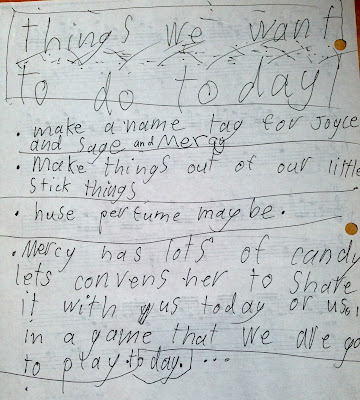 things we want
to do today
• make a name tag for Joyce
and Sage and Mercy
• Make things out of our little
stick things
• huse perfume maybe.
• Mercy has lots of candy
lets convens her to share
it with us today or us
in a game that we are go
to play today. ...